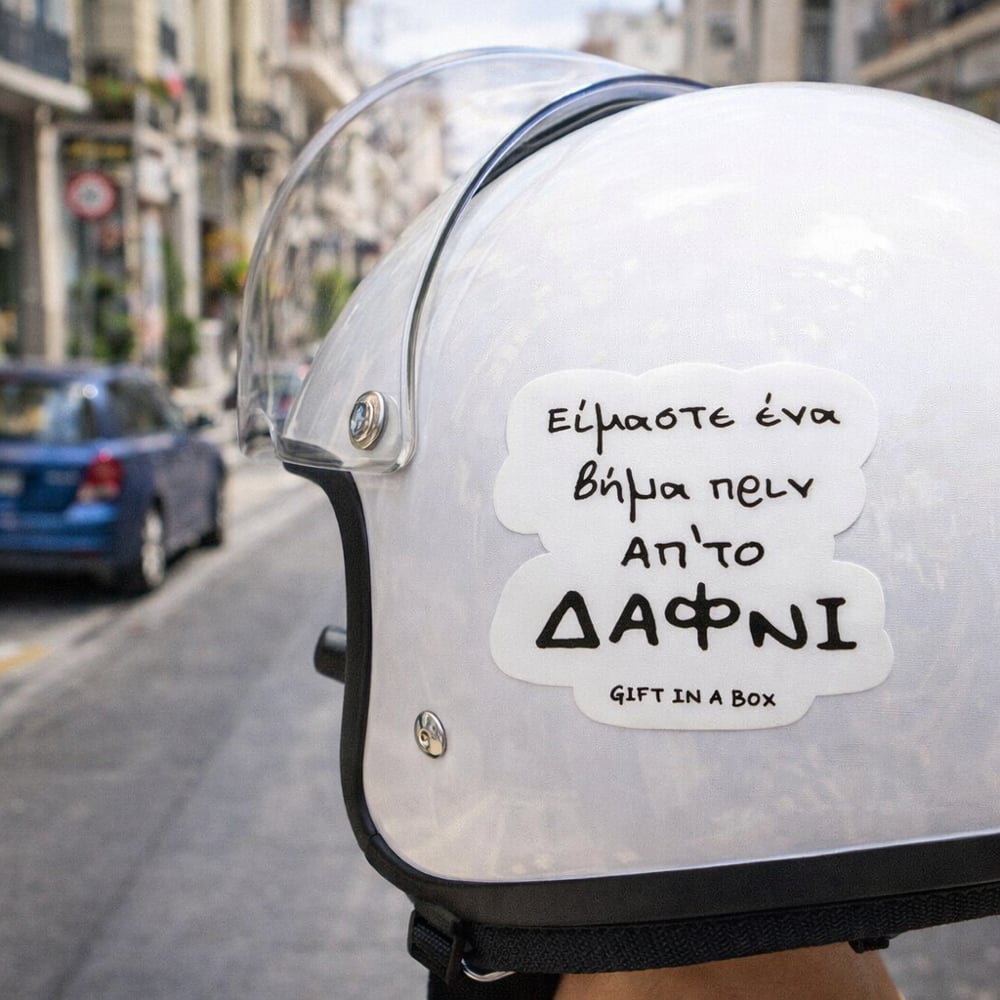 Είμαστε ένα
βήμα πριν
απ'το
ΔΑΦΝΙ
GIFT IN A BOX